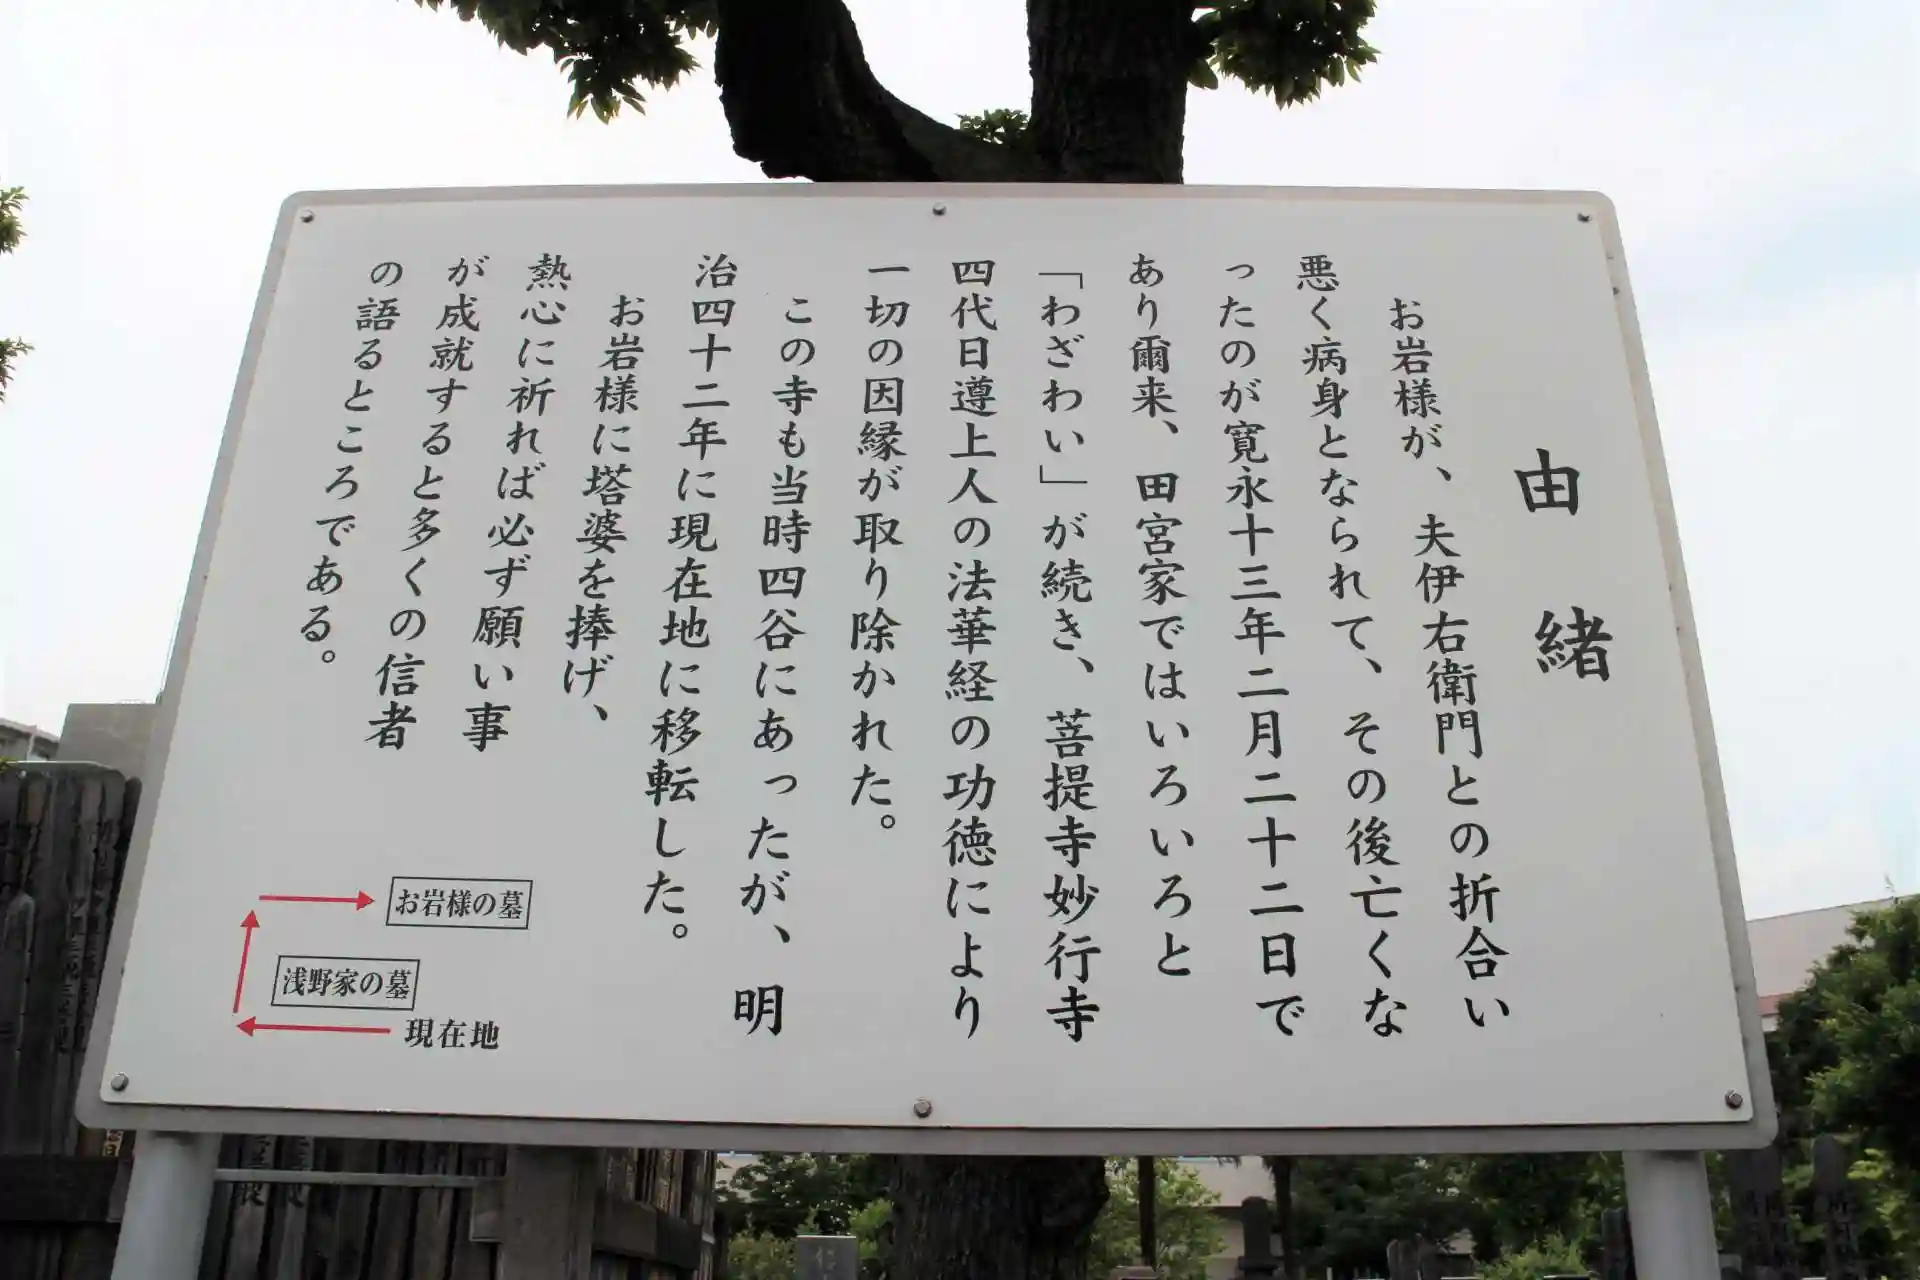 由緒
お岩様が、夫伊右衛門との折合い
悪く病身となられて、その後亡くな
ったのが寛永十三年二月二十二日で
あり爾来、田宮家ではいろいろと
「わざわい」が続き、菩提寺妙行寺
四代日遵上人の法華経の功徳により
一切の因縁が取り除かれた。
この寺も当時四谷にあったが、明
治四十二年に現在地に移転した。
お岩様に塔婆を捧げ、
熱心に祈れば必ず願い事
が成就すると多くの信者
の語るところである。
お岩様の墓
浅野家の墓
現在地